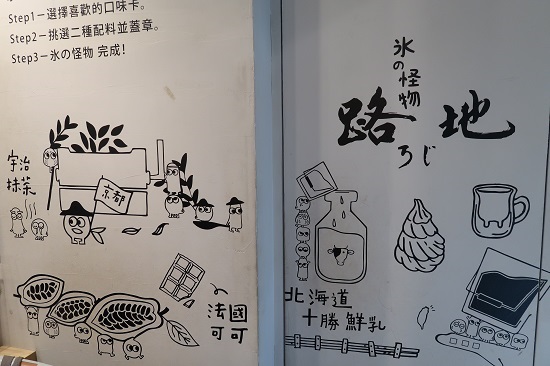 Step1－選擇喜歡的口味卡。
Step2－挑選二種配料並蓋章。
Step3－氷の怪物 完成!
宇治
抹茶
京都
法國
可可
氷の怪物
路地
ろじ
北海道
十勝鮮乳